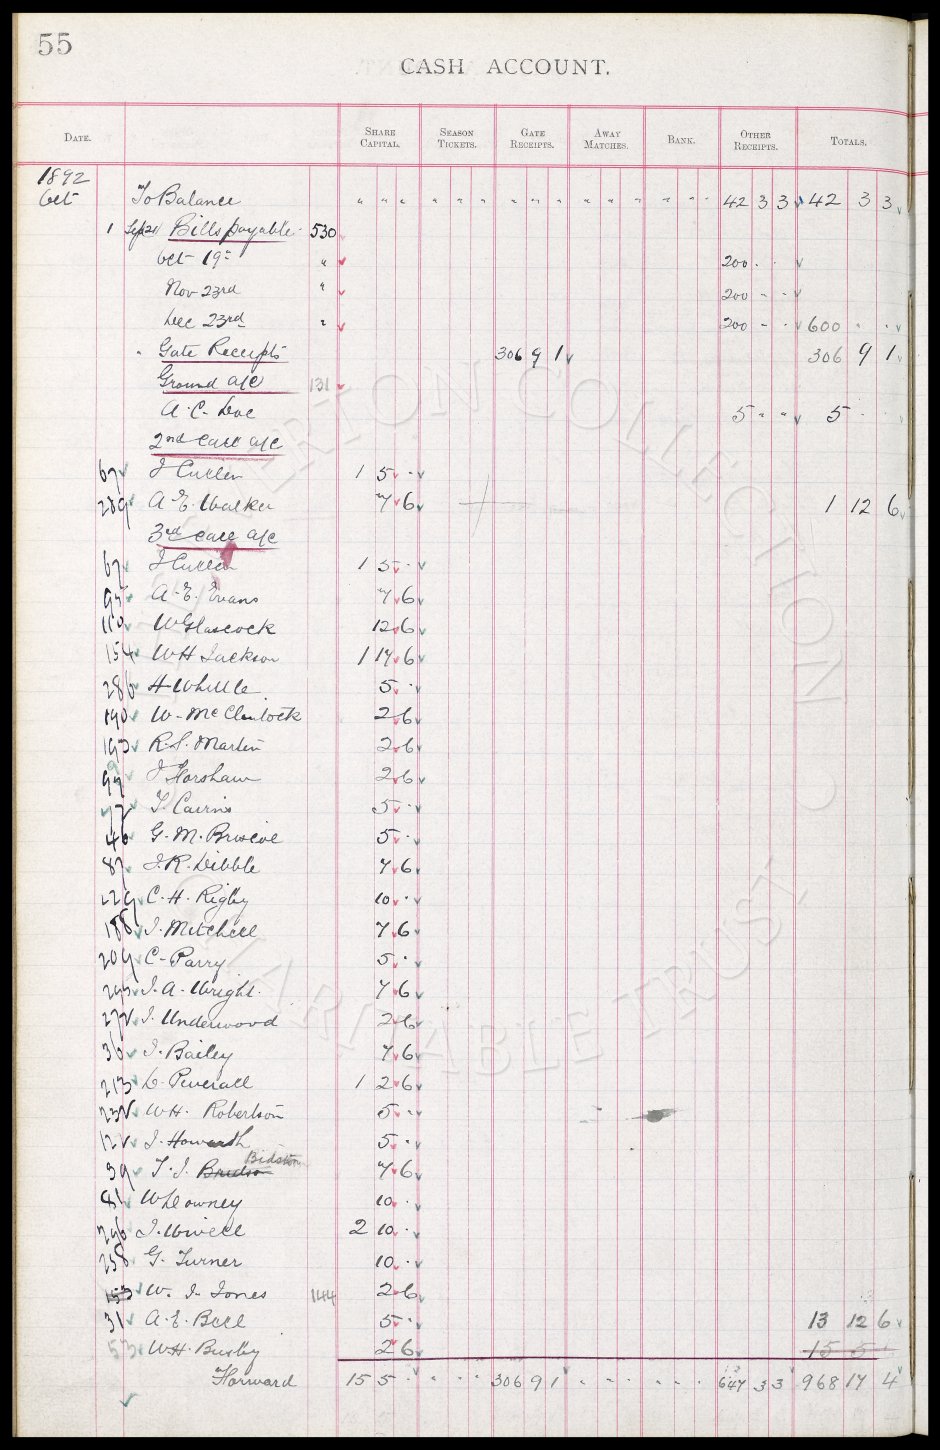 55
CASH ACCOUNT.
DATE. SHARE CAPITAL. SEASON TICKETS. GATE RECEIPTS. AWAY MATCHES. BANK. OTHER RECEIPTS. TOTALS.
1892
Oct To Balance " " " " " " " " " " " " " " " 42 3 3 42 3 3
1 Sep 21 Bills payable 530
Oct 19th " 200 . .
Nov 23rd " 200 - -
Dec 23rd " 200 - - 600 " "
" Gate Receipts 306 9 1 306 9 1
Ground a/c 131
A. C. Doe 5 " " 5 . .
2nd Call a/c
67 J Cullen 1 5 -
289 A. E. Walker 7 6 1 12 6
3rd Call a/c
67 J Cullen 1 5 -
95 A. E. Evans 7 6
110 W Glascock 12 6
154 WH Jackson 1 17 6
286 H Whittle 5 -
190 W. McClintock 2 6
193 R. S. Martin 2 6
99 J Forshaw 2 6
72 T. Cairns 5 -
40 G. M. Briscoe 5 -
87 J. R. Dibble 7 6
229 C. H. Rigby 10 -
188 J. Mitchell 7 6
209 C. Parry 5 -
295 J. A. Wright. 7 6
272 J. Underwood 2 6
36 J. Bailey 7 6
213 L. Peverall 1 2 6
232 WH. Robertson 5 -
122 J. Howarth 5 -
Bidston
39 T. J. Bridson 7 6
81 W Downey 10 -
296 J. Uwell 2 10 -
258 G. Turner 10 -
153 W. J. Jones 144 2 6
31 A. E. Bell 5 - 13 12 6
53 WH. Busby 2 6 15 5
Forward 15 5 - " " " 306 9 1 " " " " " " 647 3 3 968 17 4
EVERTON COLLECTION CHARITABLE TRUST